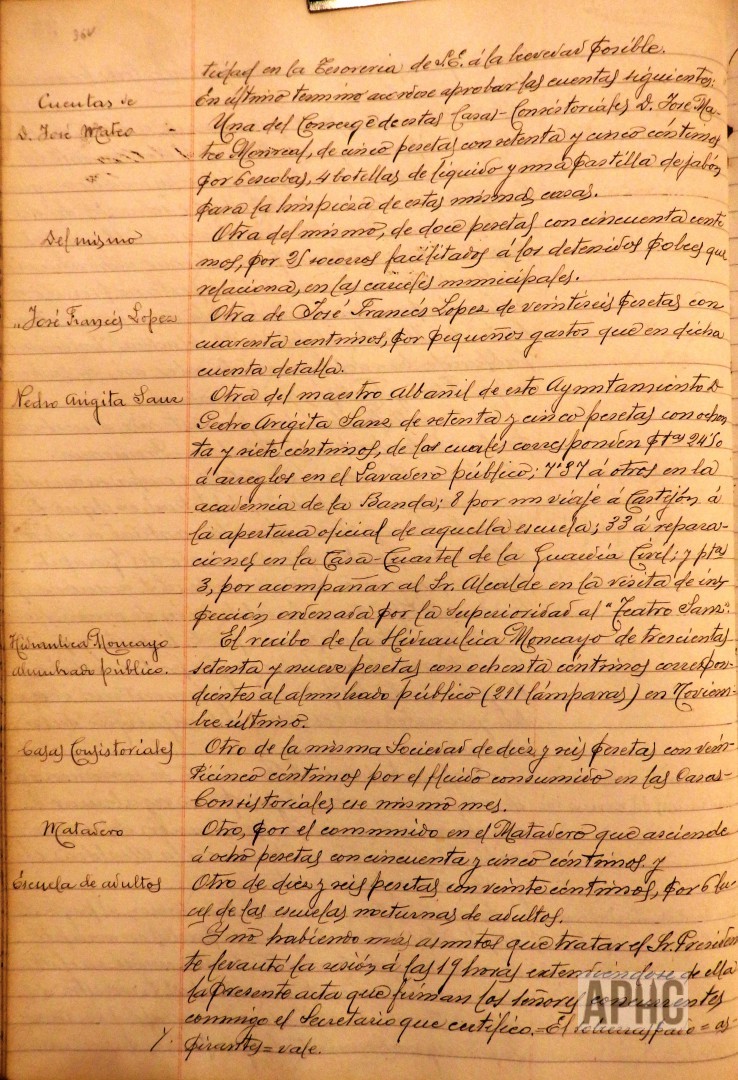 tidad en la Tesoreria de S.E. á la brevedad posible.
En último termino acordose aprobar las cuentas siguientes:
Cuentas de
D. José Mateo
Una del Conserge de estas Casas-Consistoriales D. José Ma-
teo Monreal, de cinco pesetas con setenta y cinco céntimos
por 6 escobas, 4 botellas de líquido y una pastilla de jabón
para la limpieza de estas mismas casas.
Del mismo
Otra del mismo, de doce pesetas con cincuenta cénti
mos, por 25 socorros facilitados á los detenidos pobres que
relaciona, en las carceles municipales.
" José Francés Lopez
Otra de José Francés Lopez de veintiseis pesetas con
cuarenta centimos, por pequeños gastos que en dicha
cuenta detalla.
Pedro Arigita Sanz
Otra del maestro Albañil de este Ayuntamiento D.
Pedro Arigita Sanz de setenta y cinco pesetas con ochen
ta y siete céntimos, de las cuales corresponden ptas 24'50
á arreglos en el Lavadero público; 7'37 á otros en la
academia de la Banda; 8 por un viaje á Castejón á
la apertura oficial de aquella escuela; 33 á repara-
ciones en la Casa-Cuartel de la Guardia Civil; y ptas
3, por acompañar al Sr. Alcalde en la visita de ins-
pección ordenada por la Superioridad al "Teatro Sanz".
Hidraulica Moncayo
alumbrado público.
El recibo de la Hidraulica Moncayo de trescientas
setenta y nueve pesetas con ochenta céntimos correspon-
dientes al alumbrado público (211 lámparas) en Noviem-
bre último.
Casas Consistoriales
Otro de la misma Sociedad de diez y seis pesetas con vein-
ticinco céntimos por el fluido consumido en las Casas-
Consistoriales ese mismo mes.
Matadero
Otro, por el consumido en el Matadero que asciende
á ocho pesetas con cincuenta y cinco céntimos y
Escuela de adultos
Otro de diez y seis pesetas con veinte céntimos, por 6 lu-
ces de las escuelas nocturnas de adultos.
Y no habiendo más asuntos que tratar el Sr. Presiden
te levantó la sesión á las 19 horas extendiéndose de ella
la presente acta que firman los señores concurrentes
conmigo el Secretario que certifico.=El = as-
pirantes = vale.
APHC